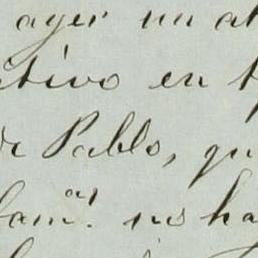 ayer un
tivo en
de Pablo, qu
lam.as no ha